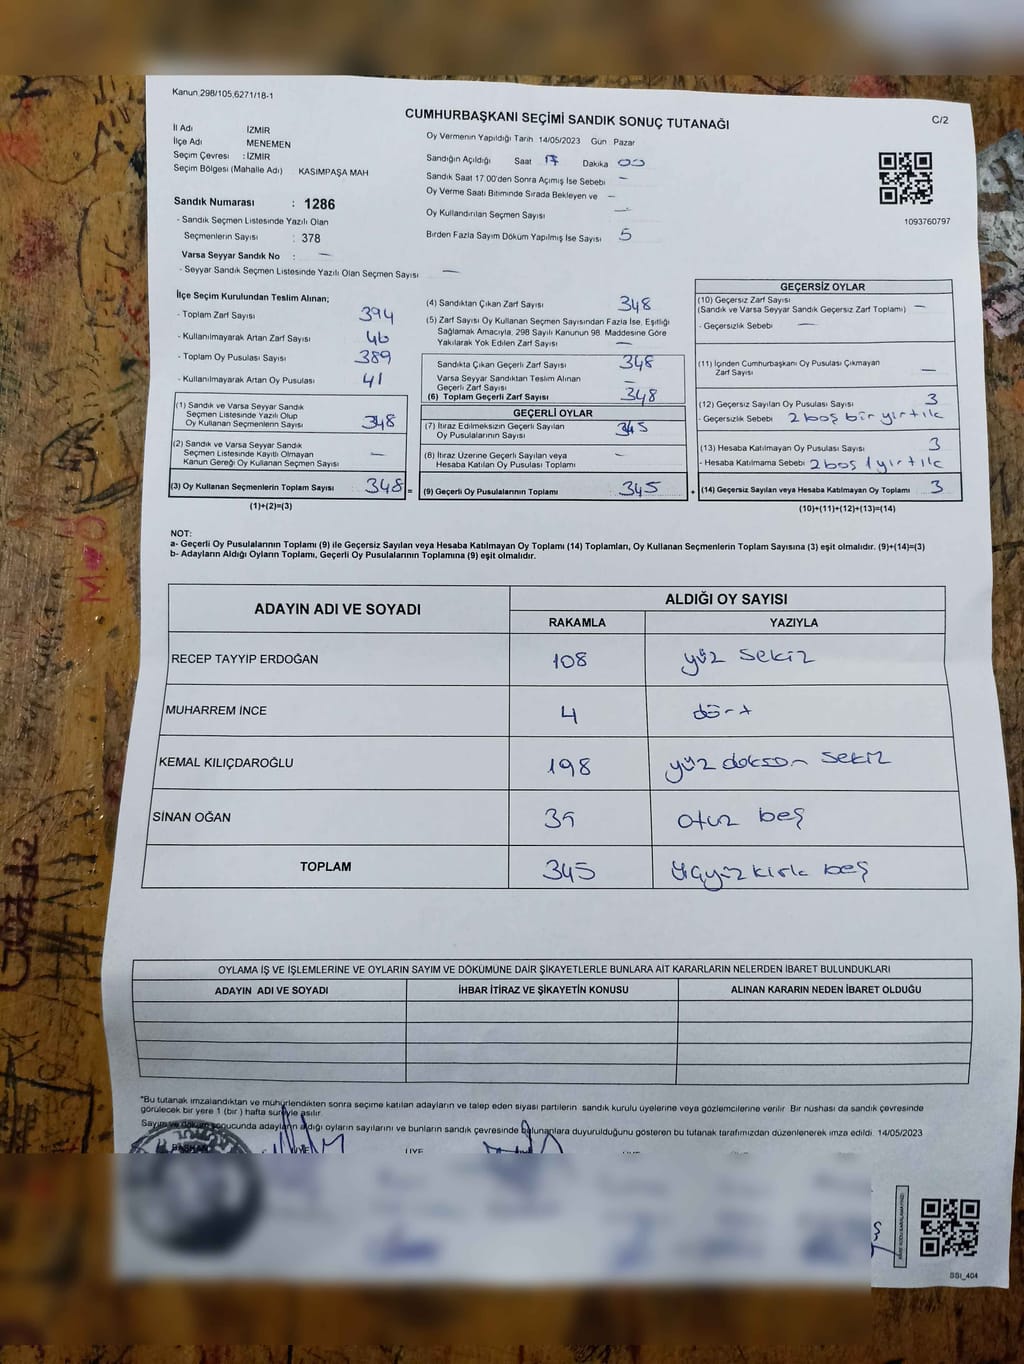 Kanun 298/105,6271/18-1
CUMHURBAŞKANI SEÇİMİ SANDIK SONUÇ TUTANAĞI
C/2
İl Adı İZMİR
İlçe Adı MENEMEN
Seçim Çevresi : İZMİR
Seçim Bölgesi (Mahalle Adı) KASIMPAŞA MAH
Sandık Numarası : 1286
- Sandık Seçmen Listesinde Yazılı Olan
Seçmenlerin Sayısı : 378
Varsa Seyyar Sandık No : —
- Seyyar Sandık Seçmen Listesinde Yazılı Olan Seçmen Sayısı —
Oy Vermenin Yapıldığı Tarih 14/05/2023 Gün Pazar
Sandığın Açıldığı Saat 17 Dakika 00
Sandık Saat 17.00'den Sonra Açımış İse Sebebi —
Oy Verme Saati Bitiminde Sırada Bekleyen ve —
Oy Kullandırılan Seçmen Sayısı —
Birden Fazla Sayım Döküm Yapılmış İse Sayısı 5
1093760797
İlçe Seçim Kurulundan Teslim Alınan;
- Toplam Zarf Sayısı 394
- Kullanılmayarak Artan Zarf Sayısı 46
- Toplam Oy Pusulası Sayısı 389
- Kullanılmayarak Artan Oy Pusulası 41
(1) Sandık ve Varsa Seyyar Sandık
Seçmen Listesinde Yazılı Olup
Oy Kullanan Seçmenlerin Sayısı 348
(2) Sandık ve Varsa Seyyar Sandık
Seçmen Listesinde Kayıtlı Olmayan
Kanun Gereği Oy Kullanan Seçmen Sayısı —
(3) Oy Kullanan Seçmenlerin Toplam Sayısı 348 =
(1)+(2)=(3)
(4) Sandıktan Çıkan Zarf Sayısı 348
(5) Zarf Sayısı Oy Kullanan Seçmen Sayısından Fazla İse, Eşitliği
Sağlamak Amacıyla, 298 Sayılı Kanunun 98. Maddesine Göre
Yakılarak Yok Edilen Zarf Sayısı —
Sandıkta Çıkan Geçerli Zarf Sayısı 348
Varsa Seyyar Sandıktan Teslim Alınan
Geçerli Zarf Sayısı —
(6) Toplam Geçerli Zarf Sayısı 348
GEÇERLİ OYLAR
(7) İtiraz Edilmeksizin Geçerli Sayılan
Oy Pusulalarının Sayısı 345
(8) İtiraz Üzerine Geçerli Sayılan veya
Hesaba Katılan Oy Pusulası Toplamı —
(9) Geçerli Oy Pusulalarının Toplamı 345 +
GEÇERSİZ OYLAR
(10) Geçersiz Zarf Sayısı
(Sandık ve Varsa Seyyar Sandık Geçersiz Zarf Toplamı) —
- Geçersizlik Sebebi —
(11) İçinden Cumhurbaşkanı Oy Pusulası Çıkmayan
Zarf Sayısı —
(12) Geçersiz Sayılan Oy Pusulası Sayısı 3
- Geçersizlik Sebebi 2 boş bir yırtık
(13) Hesaba Katılmayan Oy Pusulası Sayısı 3
- Hesaba Katılmama Sebebi 2 boş 1 yırtık
(14) Geçersiz Sayılan veya Hesaba Katılmayan Oy Toplamı 3
(10)+(11)+(12)+(13)=(14)
NOT:
a- Geçerli Oy Pusulalarının Toplamı (9) ile Geçersiz Sayılan veya Hesaba Katılmayan Oy Toplamı (14) Toplamları, Oy Kullanan Seçmenlerin Toplam Sayısına (3) eşit olmalıdır. (9)+(14)=(3)
b- Adayların Aldığı Oyların Toplamı, Geçerli Oy Pusulalarının Toplamına (9) eşit olmalıdır.
ADAYIN ADI VE SOYADI ALDIĞI OY SAYISI
RAKAMLA YAZIYLA
RECEP TAYYİP ERDOĞAN 108 yüz sekiz
MUHARREM İNCE 4 dört
KEMAL KILIÇDAROĞLU 198 yüz doksan sekiz
SİNAN OĞAN 35 otuz beş
TOPLAM 345 üçyüz kırk beş
OYLAMA İŞ VE İŞLEMLERİNE VE OYLARIN SAYIM VE DÖKÜMÜNE DAİR ŞİKAYETLERLE BUNLARA AİT KARARLARIN NELERDEN İBARET BULUNDUKLARI
ADAYIN ADI VE SOYADI İHBAR İTİRAZ VE ŞİKAYETİN KONUSU ALINAN KARARIN NEDEN İBARET OLDUĞU
*Bu tutanak imzalandıktan ve mühürlendikten sonra seçime katılan adayların ve talep eden siyasi partilerin sandık kurulu üyelerine veya gözlemcilerine verilir. Bir nüshası da sandık çevresinde
görülecek bir yere 1 (bir) hafta süreyle asılır.
Sayım ve döküm sonucunda adayların aldığı oyların sayılarını ve bunların sandık çevresinde bulunanlara duyurulduğunu gösteren bu tutanak tarafımızdan düzenlenerek imza edildi. 14/05/2023
BAŞKAN ÜYE ÜYE
SSI_404